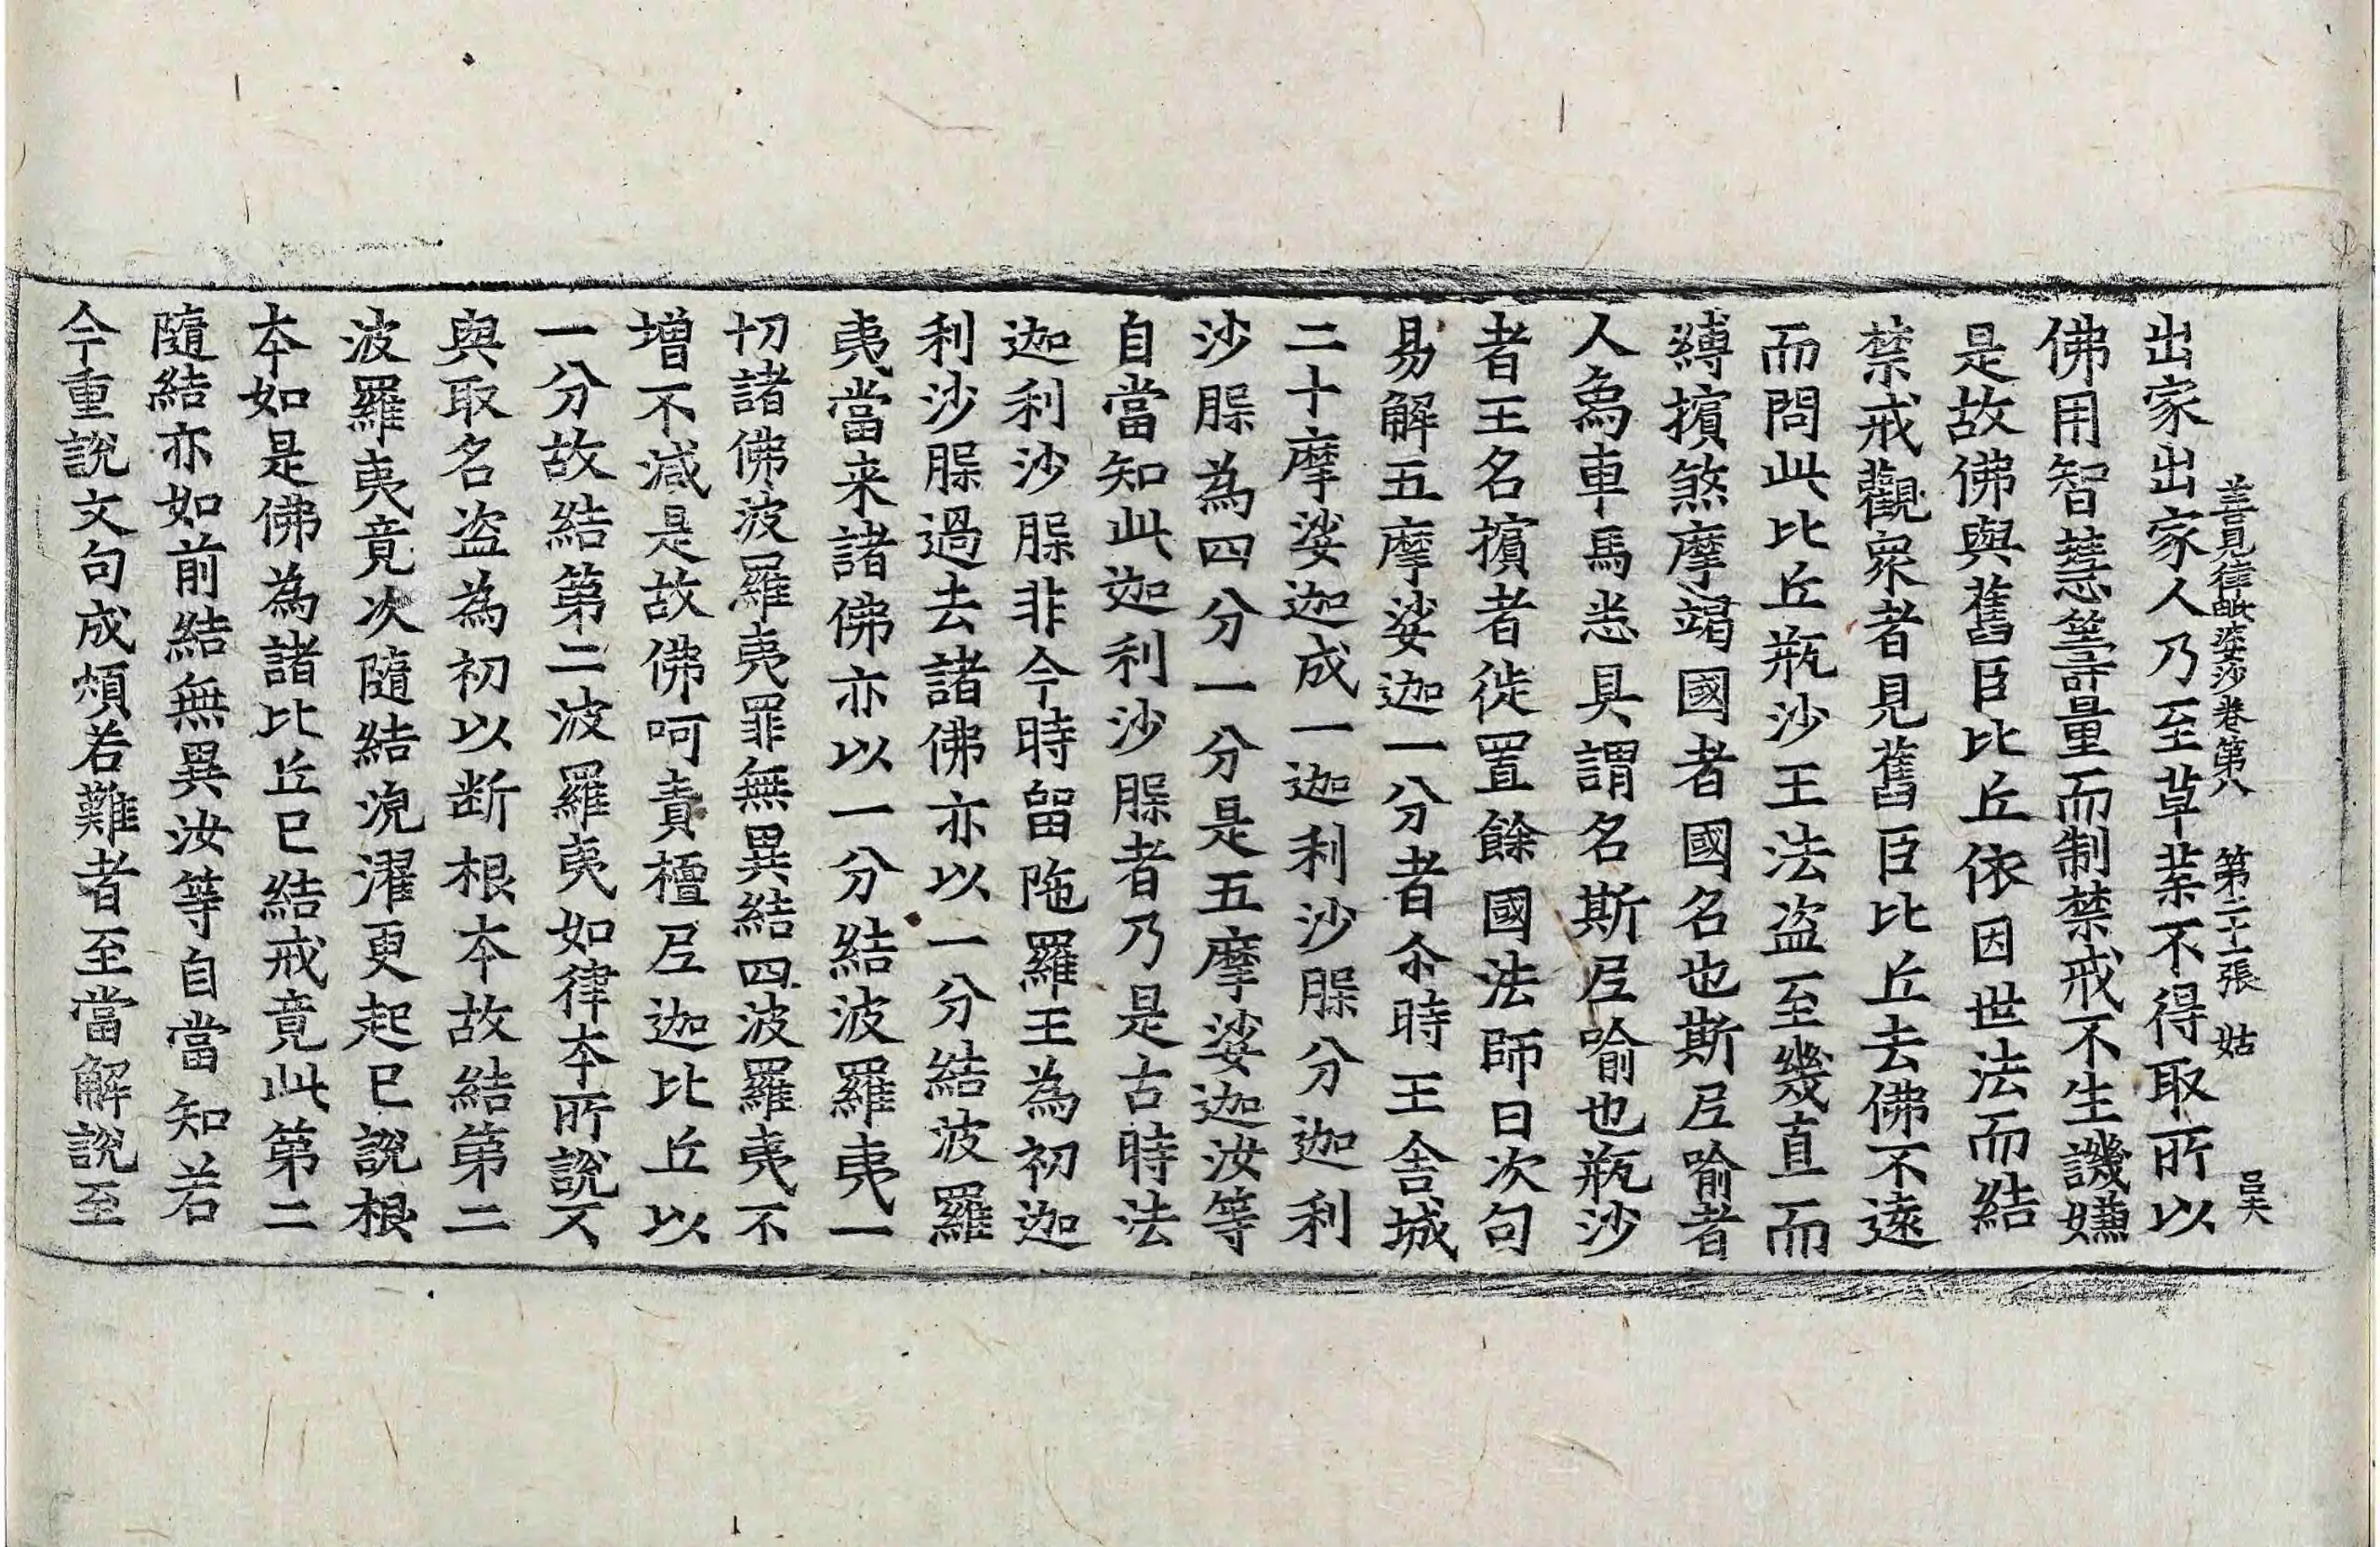 善見律毗婆沙卷第八 第二十一張 姑 吴
出家出家人乃至草葉不得取所以
佛用智慧籌量而制禁戒不生譏嫌
是故佛與舊臣比丘依因世法而結
禁戒觀衆者見舊臣比丘去佛不遠
而問此比丘瓶沙王法盜至幾直而
縛擯煞摩竭國者國名也斯尼喻者
人為車馬悉具謂名斯尼喻也瓶沙
者王名擯者徙置餘國法師曰次句
易解五摩娑迦一分者尒時王舍城
二十摩娑迦成一迦利沙𦟛分迦利
沙𦟛為四分一分是五摩娑迦汝等
自當知此迦利沙𦟛者乃是古時法
迦利沙𦟛非今時留陁羅王為初迦
利沙𦟛過去諸佛亦以一分結波羅
夷當来諸佛亦以一分結波羅夷一
切諸佛波羅夷罪無異結四波羅夷不
增不減是故佛呵責檀尼迦比丘以
一分故結第二波羅夷如律本所說不
與取名盜為初以断根本故結第二
波羅夷竟次隨結浣濯更起已說根
本如是佛為諸比丘已結戒竟此第二
隨結亦如前結無異汝等自當知若
今重說文句成煩若難者至當解說至